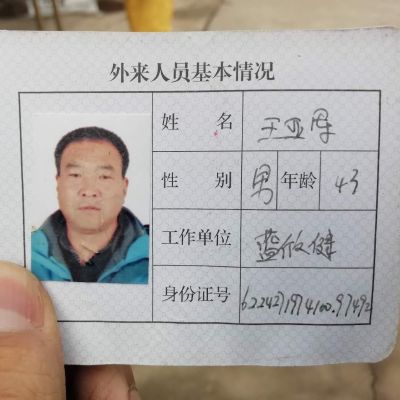 外来人员基本情况
姓 名 王亚
性 别 男 年龄 43
工作单位 健
身份证号